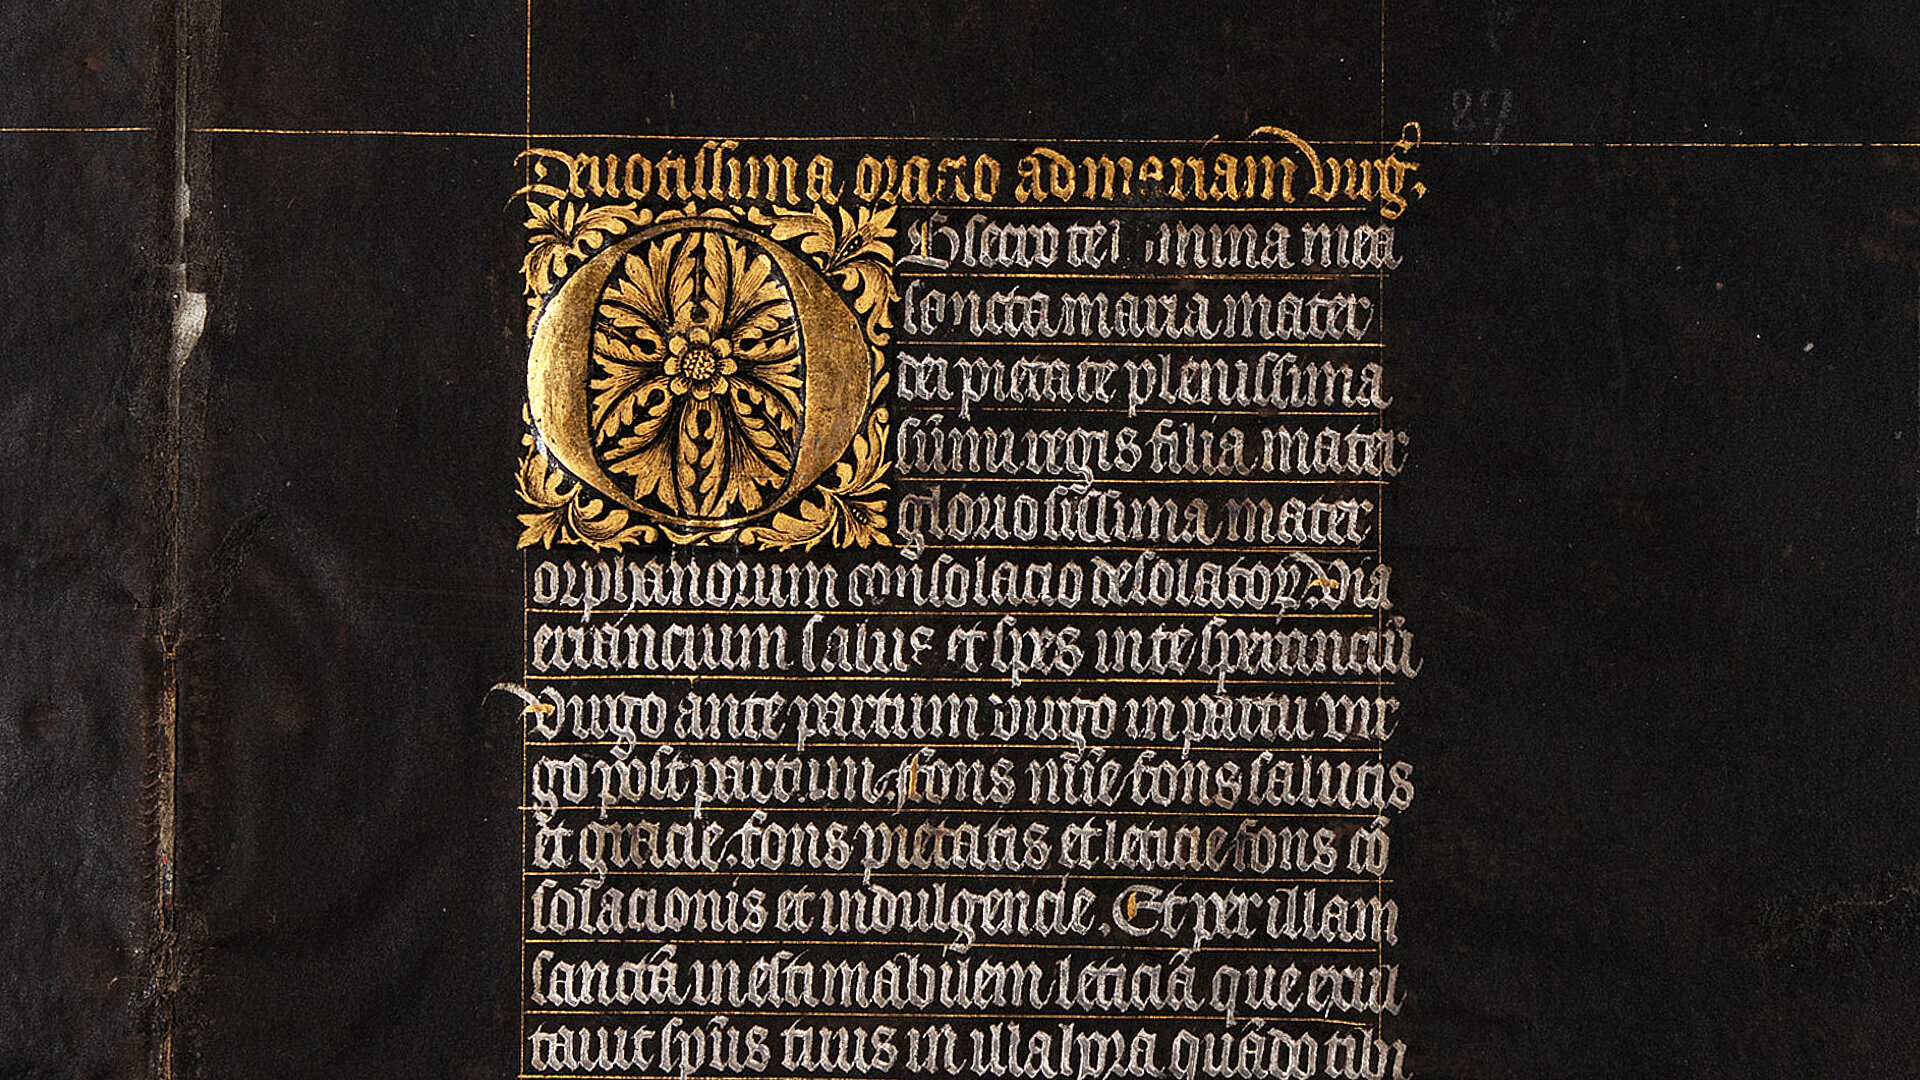 87
Deuotissima oracio ad mariam virg̃.
O Bsecro te domina mea
sancta maria mater
dei pietate plenissima
sũmi regis filia mater
gloriosissima mater
orphanorum consolacio desolatoꝝ. Via
errancium salus et spes in te speranciũ
Virgo ante partum virgo in partu vir
go post partum. ffons mĩe fons salutis
et gracie. fons pietatis et leticie fons cõ
solacionis et indulgencie. Et per illam
sanctã inestimabilem leticiã que exul
tauit sp̃us tuus in illa hora quãdo tibi